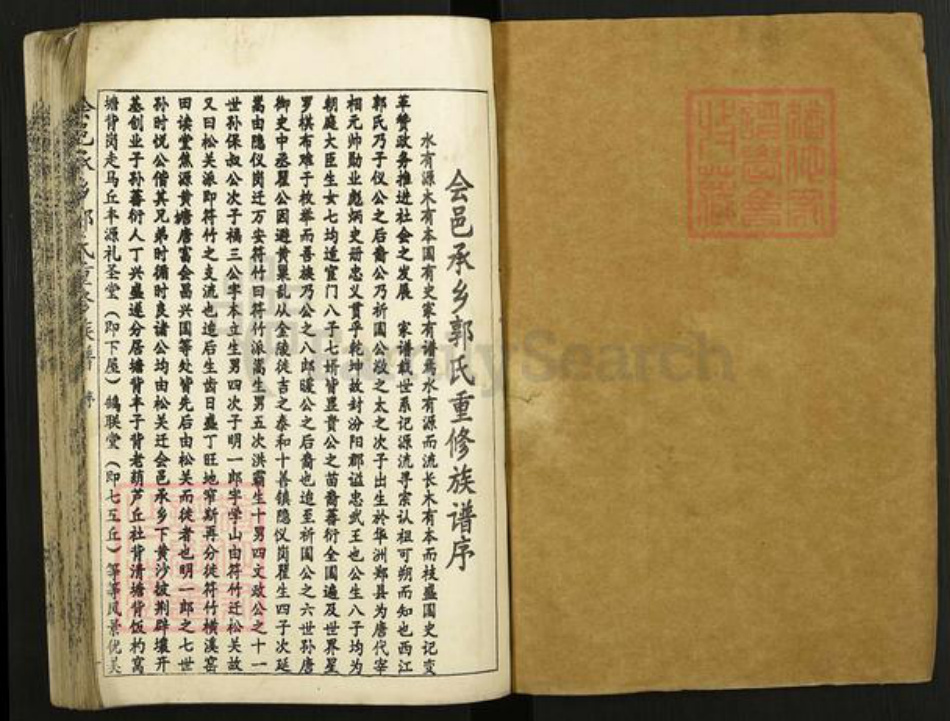 会邑承乡郭氏重修族谱序
水有源木有本国有史家有谱焉水有源而流长木有本而枝盛国史记变
革赞政务推进社会之发展 家谱载世系记源流寻宗认祖可朔而知也西江
郭氏乃子仪公之后裔公乃祈国公敬之太之次子出生於华洲郑县为唐代宰
相元帅勋业彪炳史册忠义贯乎乾坤故封汾阳郡谥忠武王也公生八子均为
朝庭大臣生女七均适宦门八子七婿皆显贵公之苗裔蕃衍全国遍及世界星
罗棋布难于枚举而吾族乃公之八郎暖公之后裔也追至祈国公之六世孙唐
御史中丞瞿公因避黄巢乱从金陵徒吉之泰和十善镇隐仪岗瞿生四子次延
嵩由隐仪岗迁万安符竹曰符竹派嵩生男五次洪霸生十男四文政公之十一
世孙保叔公次子福三公字本立生男四次子明一郎字学山由符竹迁松关故
又曰松关派即符竹之支流也追后生齿日盛丁旺地窄斯再分徒符竹横溪窑
田读堂焦源黄塘唐富会昌兴国等处皆先后由松关而徒者也明一郎之七世
孙时悦公偕其兄弟时循时良诸公均由松关迁会邑承乡下黄沙披荆辟壤开
基创业子孙蕃衍人丁兴盛遂分居塘背丰子背老葫芦丘社背清塘背饭杓窝
塘背岗走马丘丰源礼圣堂（即下屋）鹄联堂（即七工丘）等等风景优美
会邑承乡郭氏重修族谱 序
FamilySearch